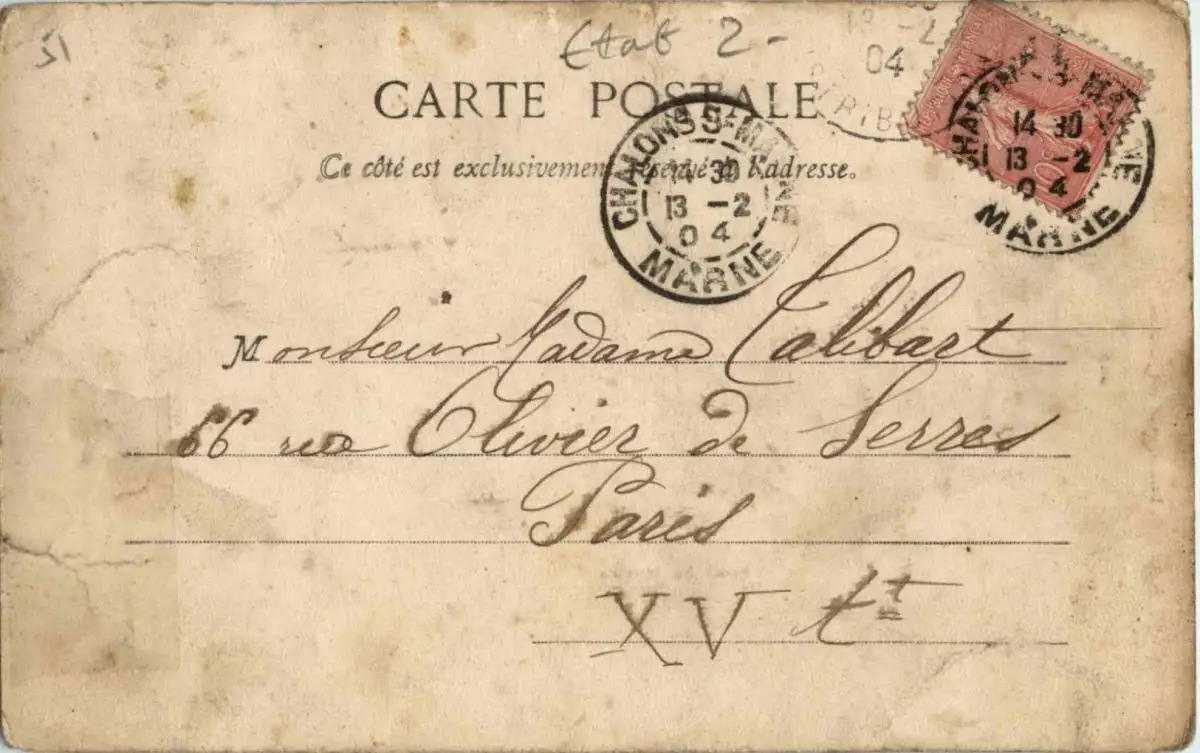 51
Etat 2-
13 -2
04
CARTE POSTALE
Ce côté est exclusivement réservé à l'adresse.
CHALONS-S-MARNE
14 30
13 -2
04
MARNE
14 30
13 -2
04
MARNE
Monsieur Madame Talibart
66 rue Olivier de Serres
Paris
XV t